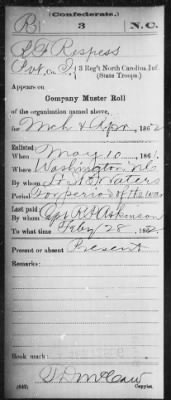 (Confederate.)
R 3 N.C.
Respess
Pvt, Co. I, 3 Reg't North Carolina Inf.
(State Troops.)
Appears on
Company Muster Roll
of the organization named above,
for Mch & Apr, 1862
Enlisted:
When May 10, 1861
Where Washington NC
By whom Lt Waters
Period for period of the war
Last paid:
By whom Capt R Atkinson
To what time Feby 28, 1862
Present or absent Present
Remarks:
Book mark:
(642) Copyist.